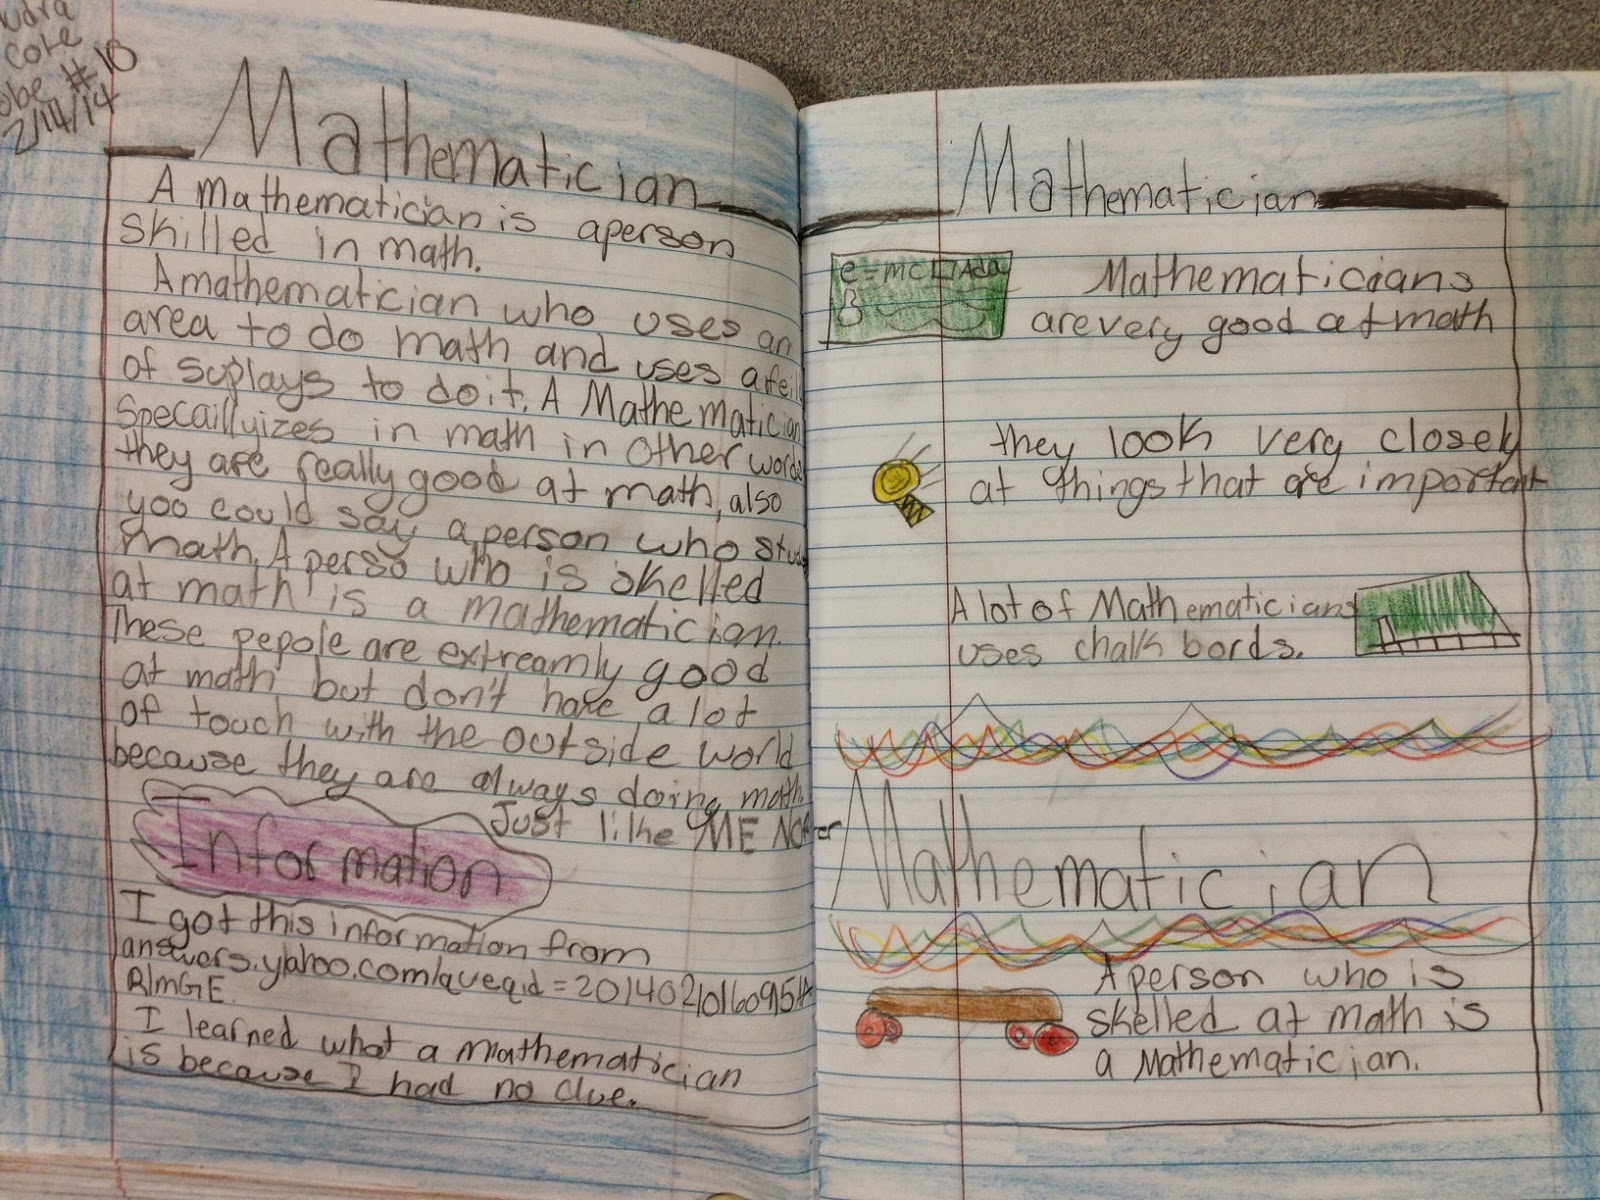 Core
#10
2/14/14
Mathematician
A Mathematician is aperson
skilled in math.
Amathematician who uses an
area to do math and uses afeil
of suplays to do it. A Mathematician
Specaillyizes in math in other words
they are really good at math, also
you could say a person who study
math. A perso who is skelled
at math is a mathematician.
These pepole are extreamly good
at math but don't have a lot
of touch with the outside world
because they are always doing math.
Just like ME NOT
Information
I got this information from
answers.yahoo.com/queqid=
RImGE.
I learned what a mathematician
is because I had no clue.
Mathematician
e=mc
Mathematicians
are very good at math
they look very closely
at things that are important
A lot of Mathematicians
uses chalk bords.
Mathematician
A person who is
skelled at math is
a Mathematician.